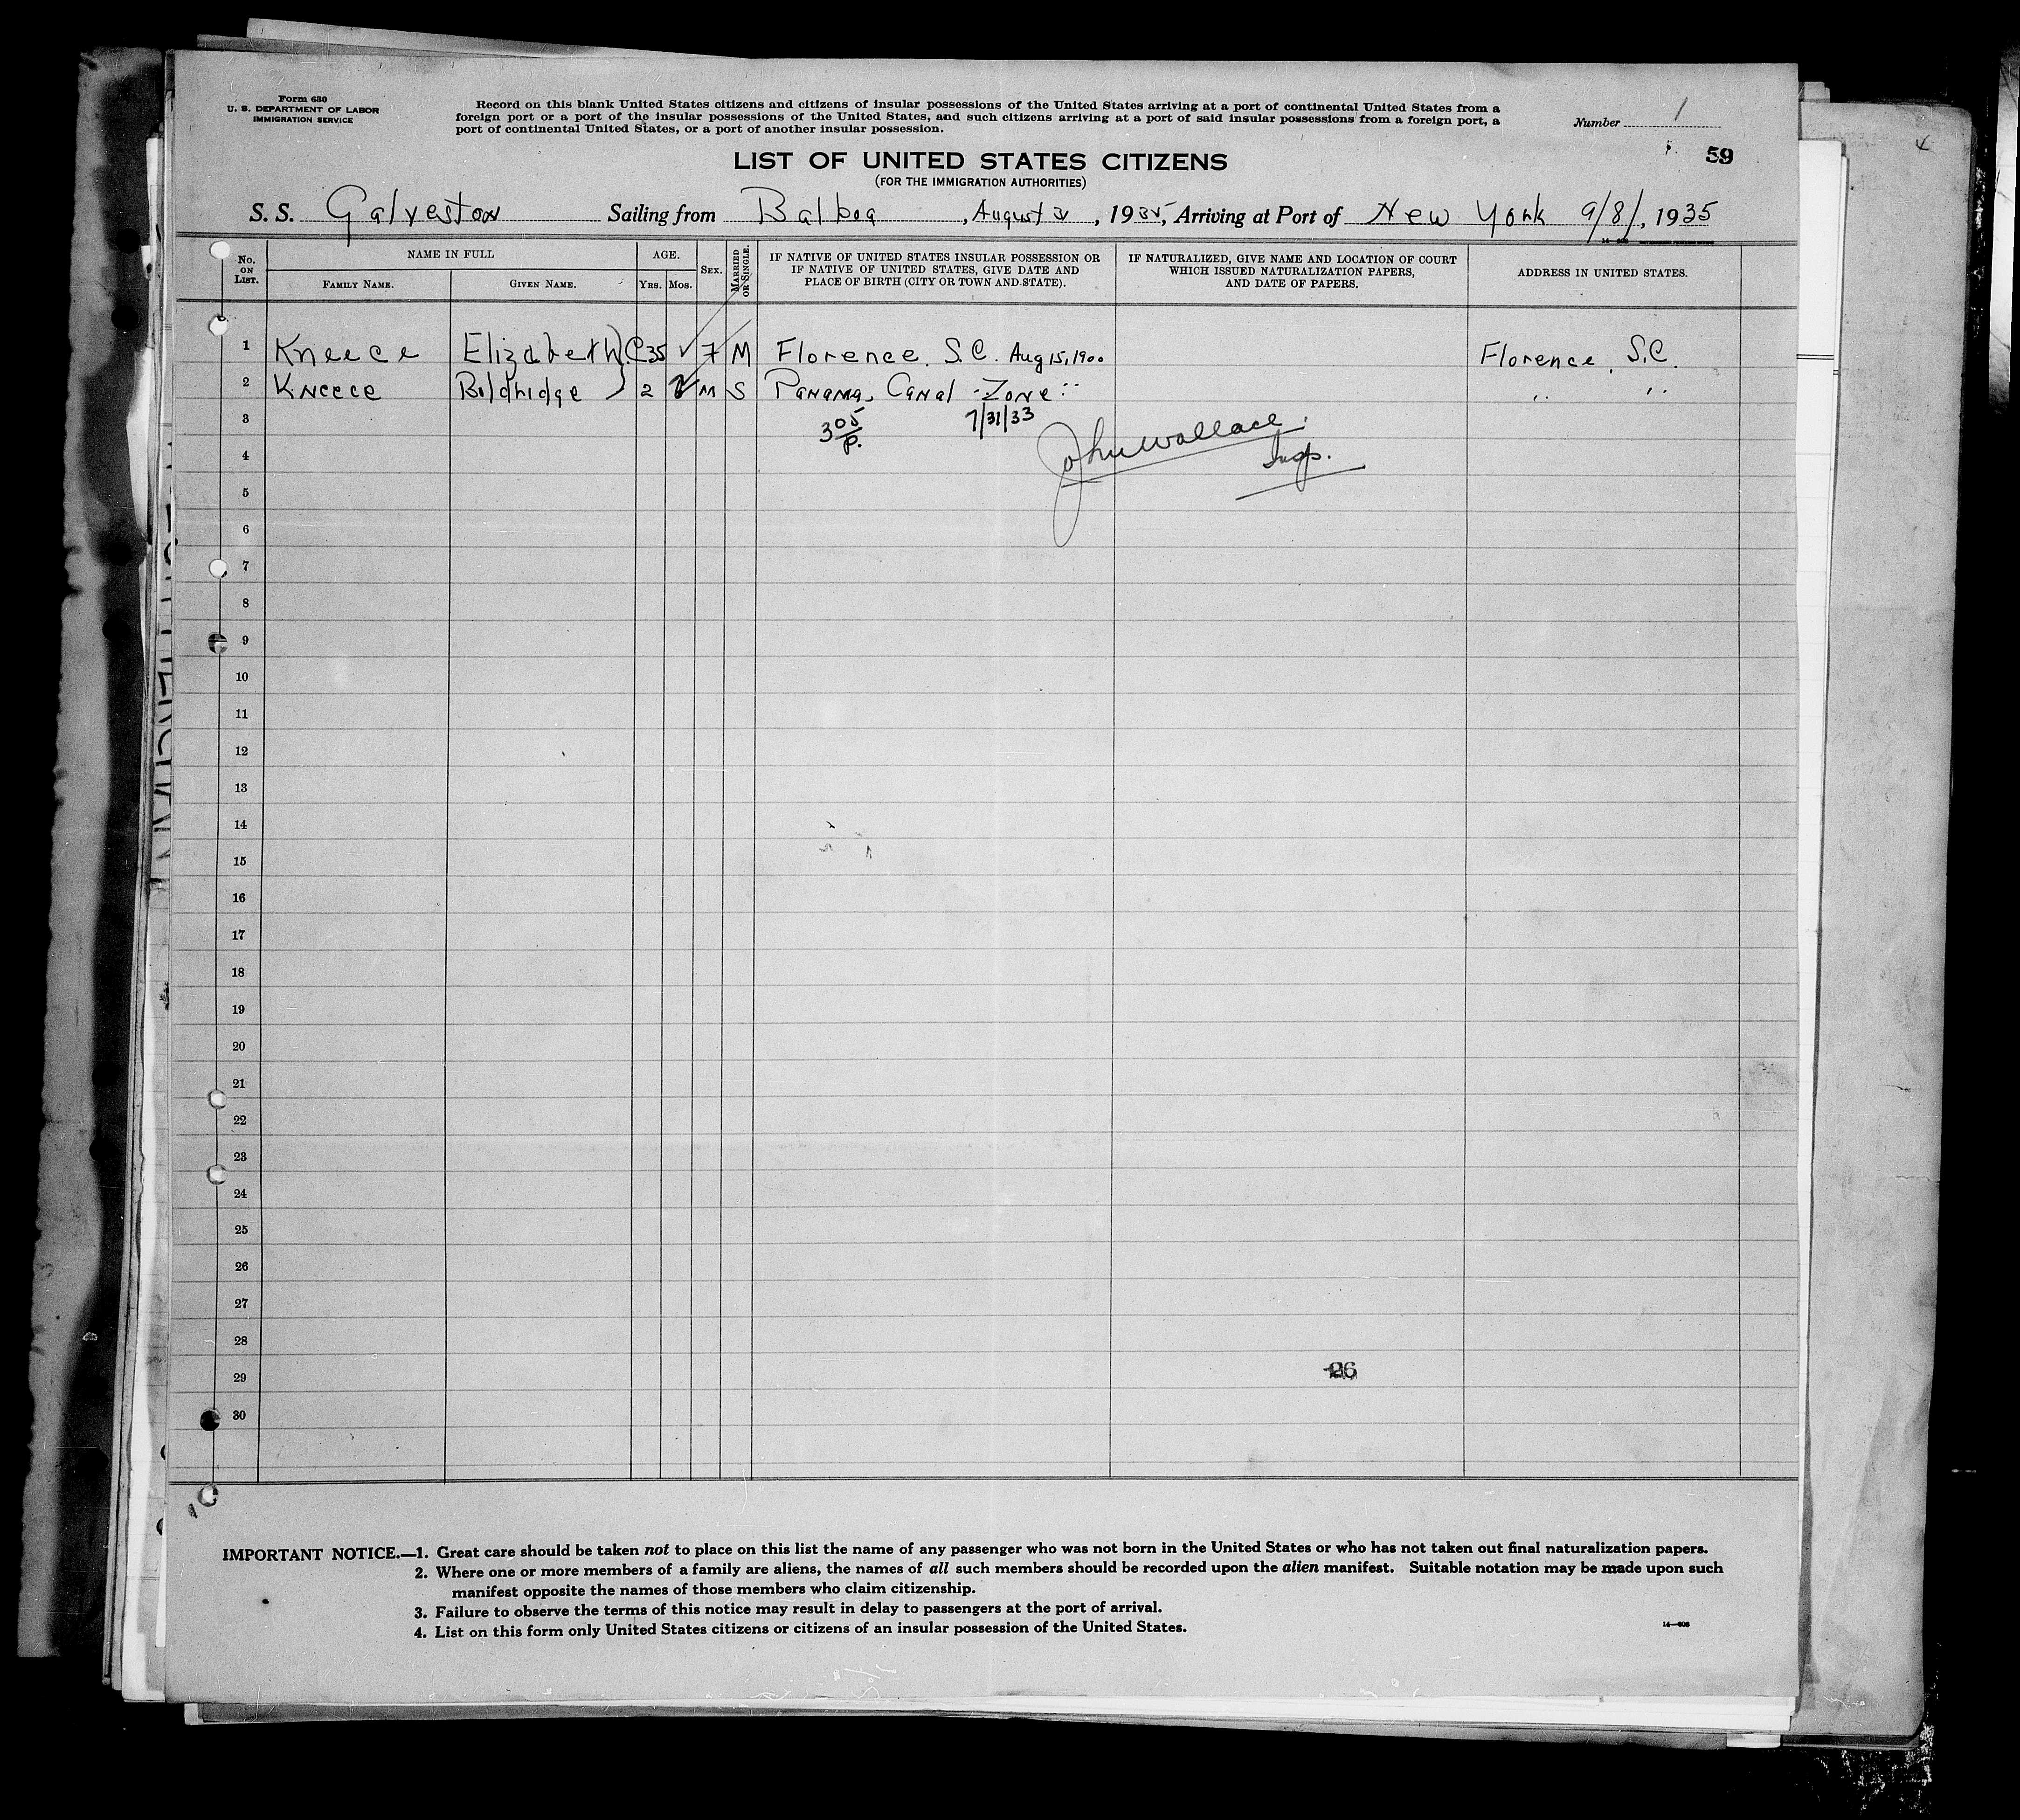 Form 630
U. S. DEPARTMENT OF LABOR
IMMIGRATION SERVICE
Record on this blank United States citizens and citizens of insular possessions of the United States arriving at a port of continental United States from a
foreign port or a port of the insular possessions of the United States, and such citizens arriving at a port of said insular possessions from a foreign port, a
port of continental United States, or a port of another insular possession.
Number 1
59
LIST OF UNITED STATES CITIZENS
(FOR THE IMMIGRATION AUTHORITIES)
S. S. Galveston Sailing from Balboa, August 31, 1935, Arriving at Port of New York 9/8/, 1935
No. ON LIST. NAME IN FULL FAMILY NAME. GIVEN NAME. AGE. YRS. MOS. SEX. MARRIED OR SINGLE. IF NATIVE OF UNITED STATES INSULAR POSSESSION OR IF NATIVE OF UNITED STATES, GIVE DATE AND PLACE OF BIRTH (CITY OR TOWN AND STATE). IF NATURALIZED, GIVE NAME AND LOCATION OF COURT WHICH ISSUED NATURALIZATION PAPERS, AND DATE OF PAPERS. ADDRESS IN UNITED STATES.
1 Kneece Elizabeth C 35 F M Florence, S.C. Aug 15, 1900 Florence, S.C.
2 Kneece 2 M S Panama, Canal Zone " "
3 305/p. 7/31/33 John Wallace
4 Insp.
5
6
7
8
9
10
11
12
13
14
15
16
17
18
19
20
21
22
23
24
25
26
27
28
29
30
IMPORTANT NOTICE.—1. Great care should be taken not to place on this list the name of any passenger who was not born in the United States or who has not taken out final naturalization papers.
2. Where one or more members of a family are aliens, the names of all such members should be recorded upon the alien manifest. Suitable notation may be made upon such
manifest opposite the names of those members who claim citizenship.
3. Failure to observe the terms of this notice may result in delay to passengers at the port of arrival.
4. List on this form only United States citizens or citizens of an insular possession of the United States.